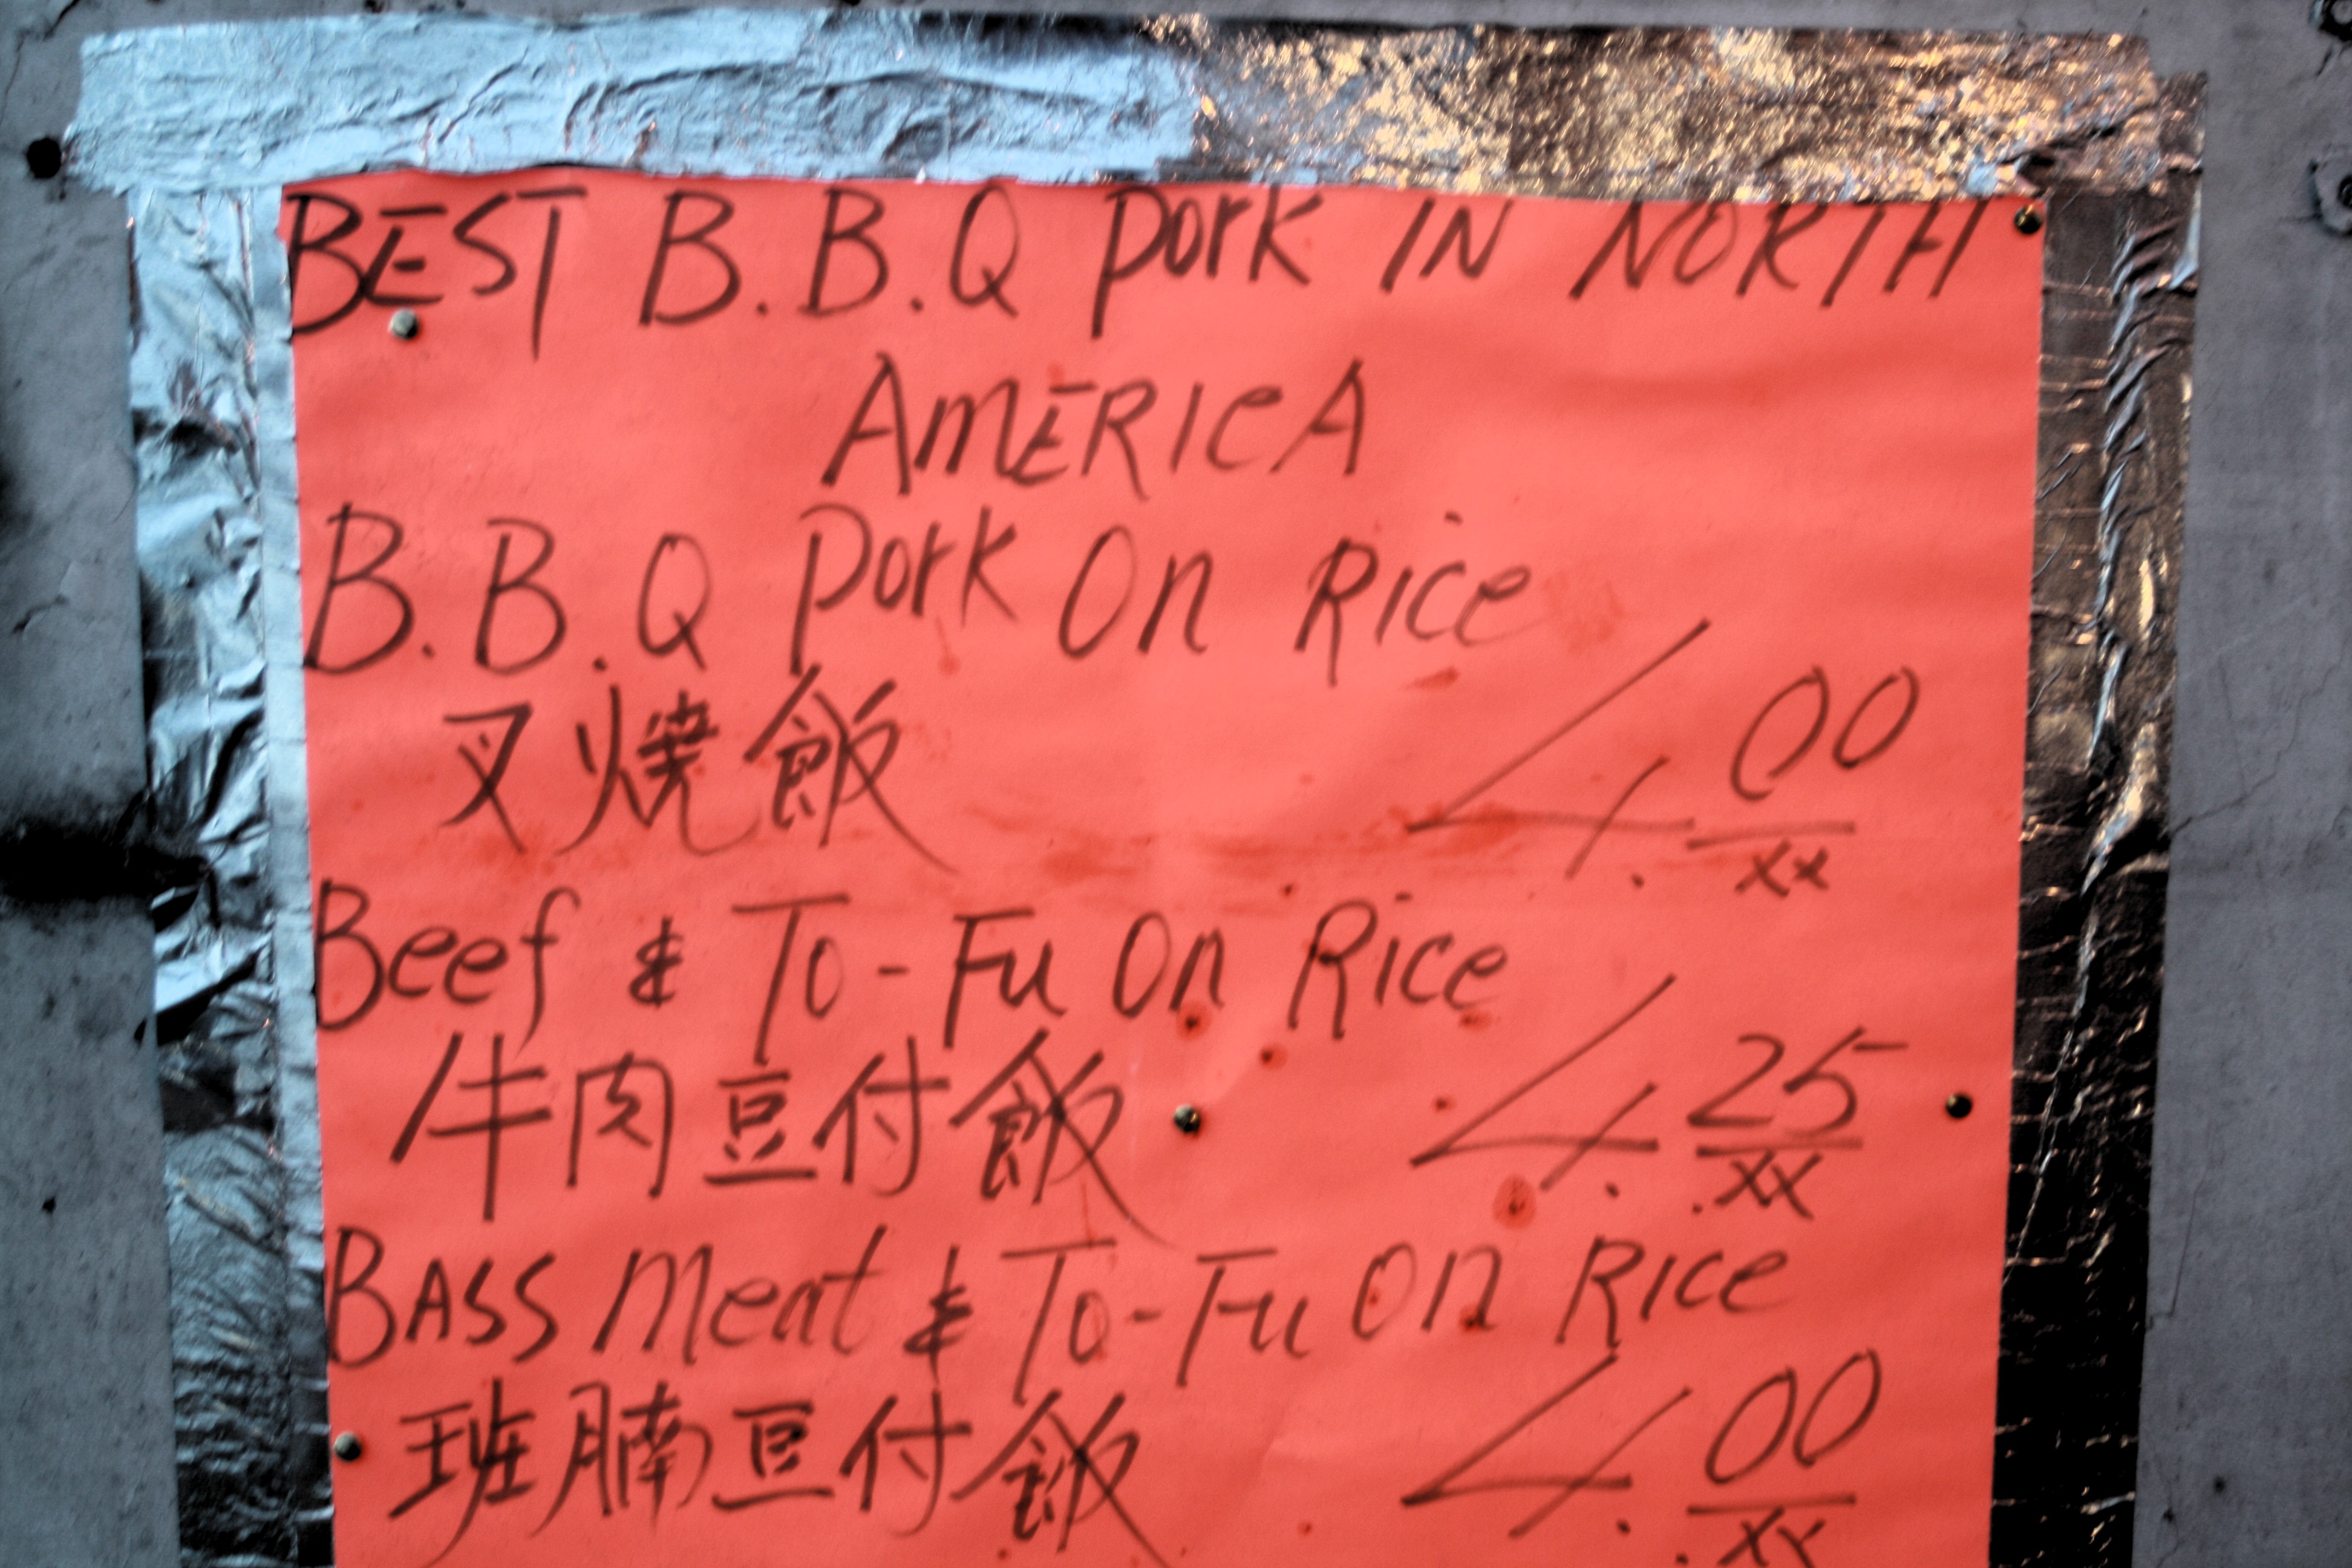 BEST B.B.Q Pork IN NORTH
AMERICA
B.B.Q Pork On Rice
叉燒飯 4.00/xx
Beef & To-Fu On Rice
牛肉豆付飯 4.25/xx
BASS Meat & To-Fu On Rice
班腩豆付飯 4.00/xx